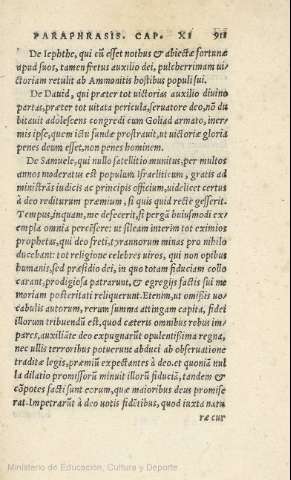 PARAPHRASIS. CAP. XI 911
De Iephthe, qui cũ esset nothus & abiectæ fortunæ
apud suos, tamen fretus auxilio dei, pulcherrimam ui/
ctoriam retulit ab Ammonitis hostibus populi sui.
De Dauid, qui præter tot uictorias auxilio diuino
partas, præter tot uitata pericula, seruatore deo, nõ du
bitauit adolescens congredi cum Goliad armato, iner/
mis ipse, quem ictu fundæ prostrauit, ut uictoriæ gloria
penes deum esset, non penes hominem.
De Samuele, qui nullo satellitio munitus, per multos
annos moderatus est populum Israeliticum, gratis ad
ministrãs iudicis ac principis officium, uidelicet certus
à deo rediturum præmium, si quis quid recte gesserit.
Tempus, inquam, me defecerit, si pergã huiusmodi ex/
empla omnia percẽsere: ut sileam interim tot eximios
prophetas, qui deo freti, tyrannorum minas pro nihilo
ducebant: tot religione celebres uiros, qui non opibus
humanis, sed præsidio dei, in quo totam fiduciam collo
carant, prodigiosa patrarunt, & egregijs factis sui me
moriam posteritati reliquerunt. Etenim, ut omißis uo/
cabulis autorum, rerum summa attingam capita, fidei
illorum tribuendũ est, quod cæteris omnibus robus im/
pares, auxiliãte deo expugnarũt opulentißima regna,
nec ullis terroribus potuerunt abduci ab obseruatione
traditæ legis, præmiũ expectantes à deo. et quoniã nul
la dilatio promissorũ minuit illorũ fiduciã, tandem &
cõpotes facti sunt eorum, quæ maioribus deus promise
rat. Impetrarũt à deo uotis fidẽtibus, quod iuxta natu
ræ cur
Ministerio de Educación, Cultura y Deporte